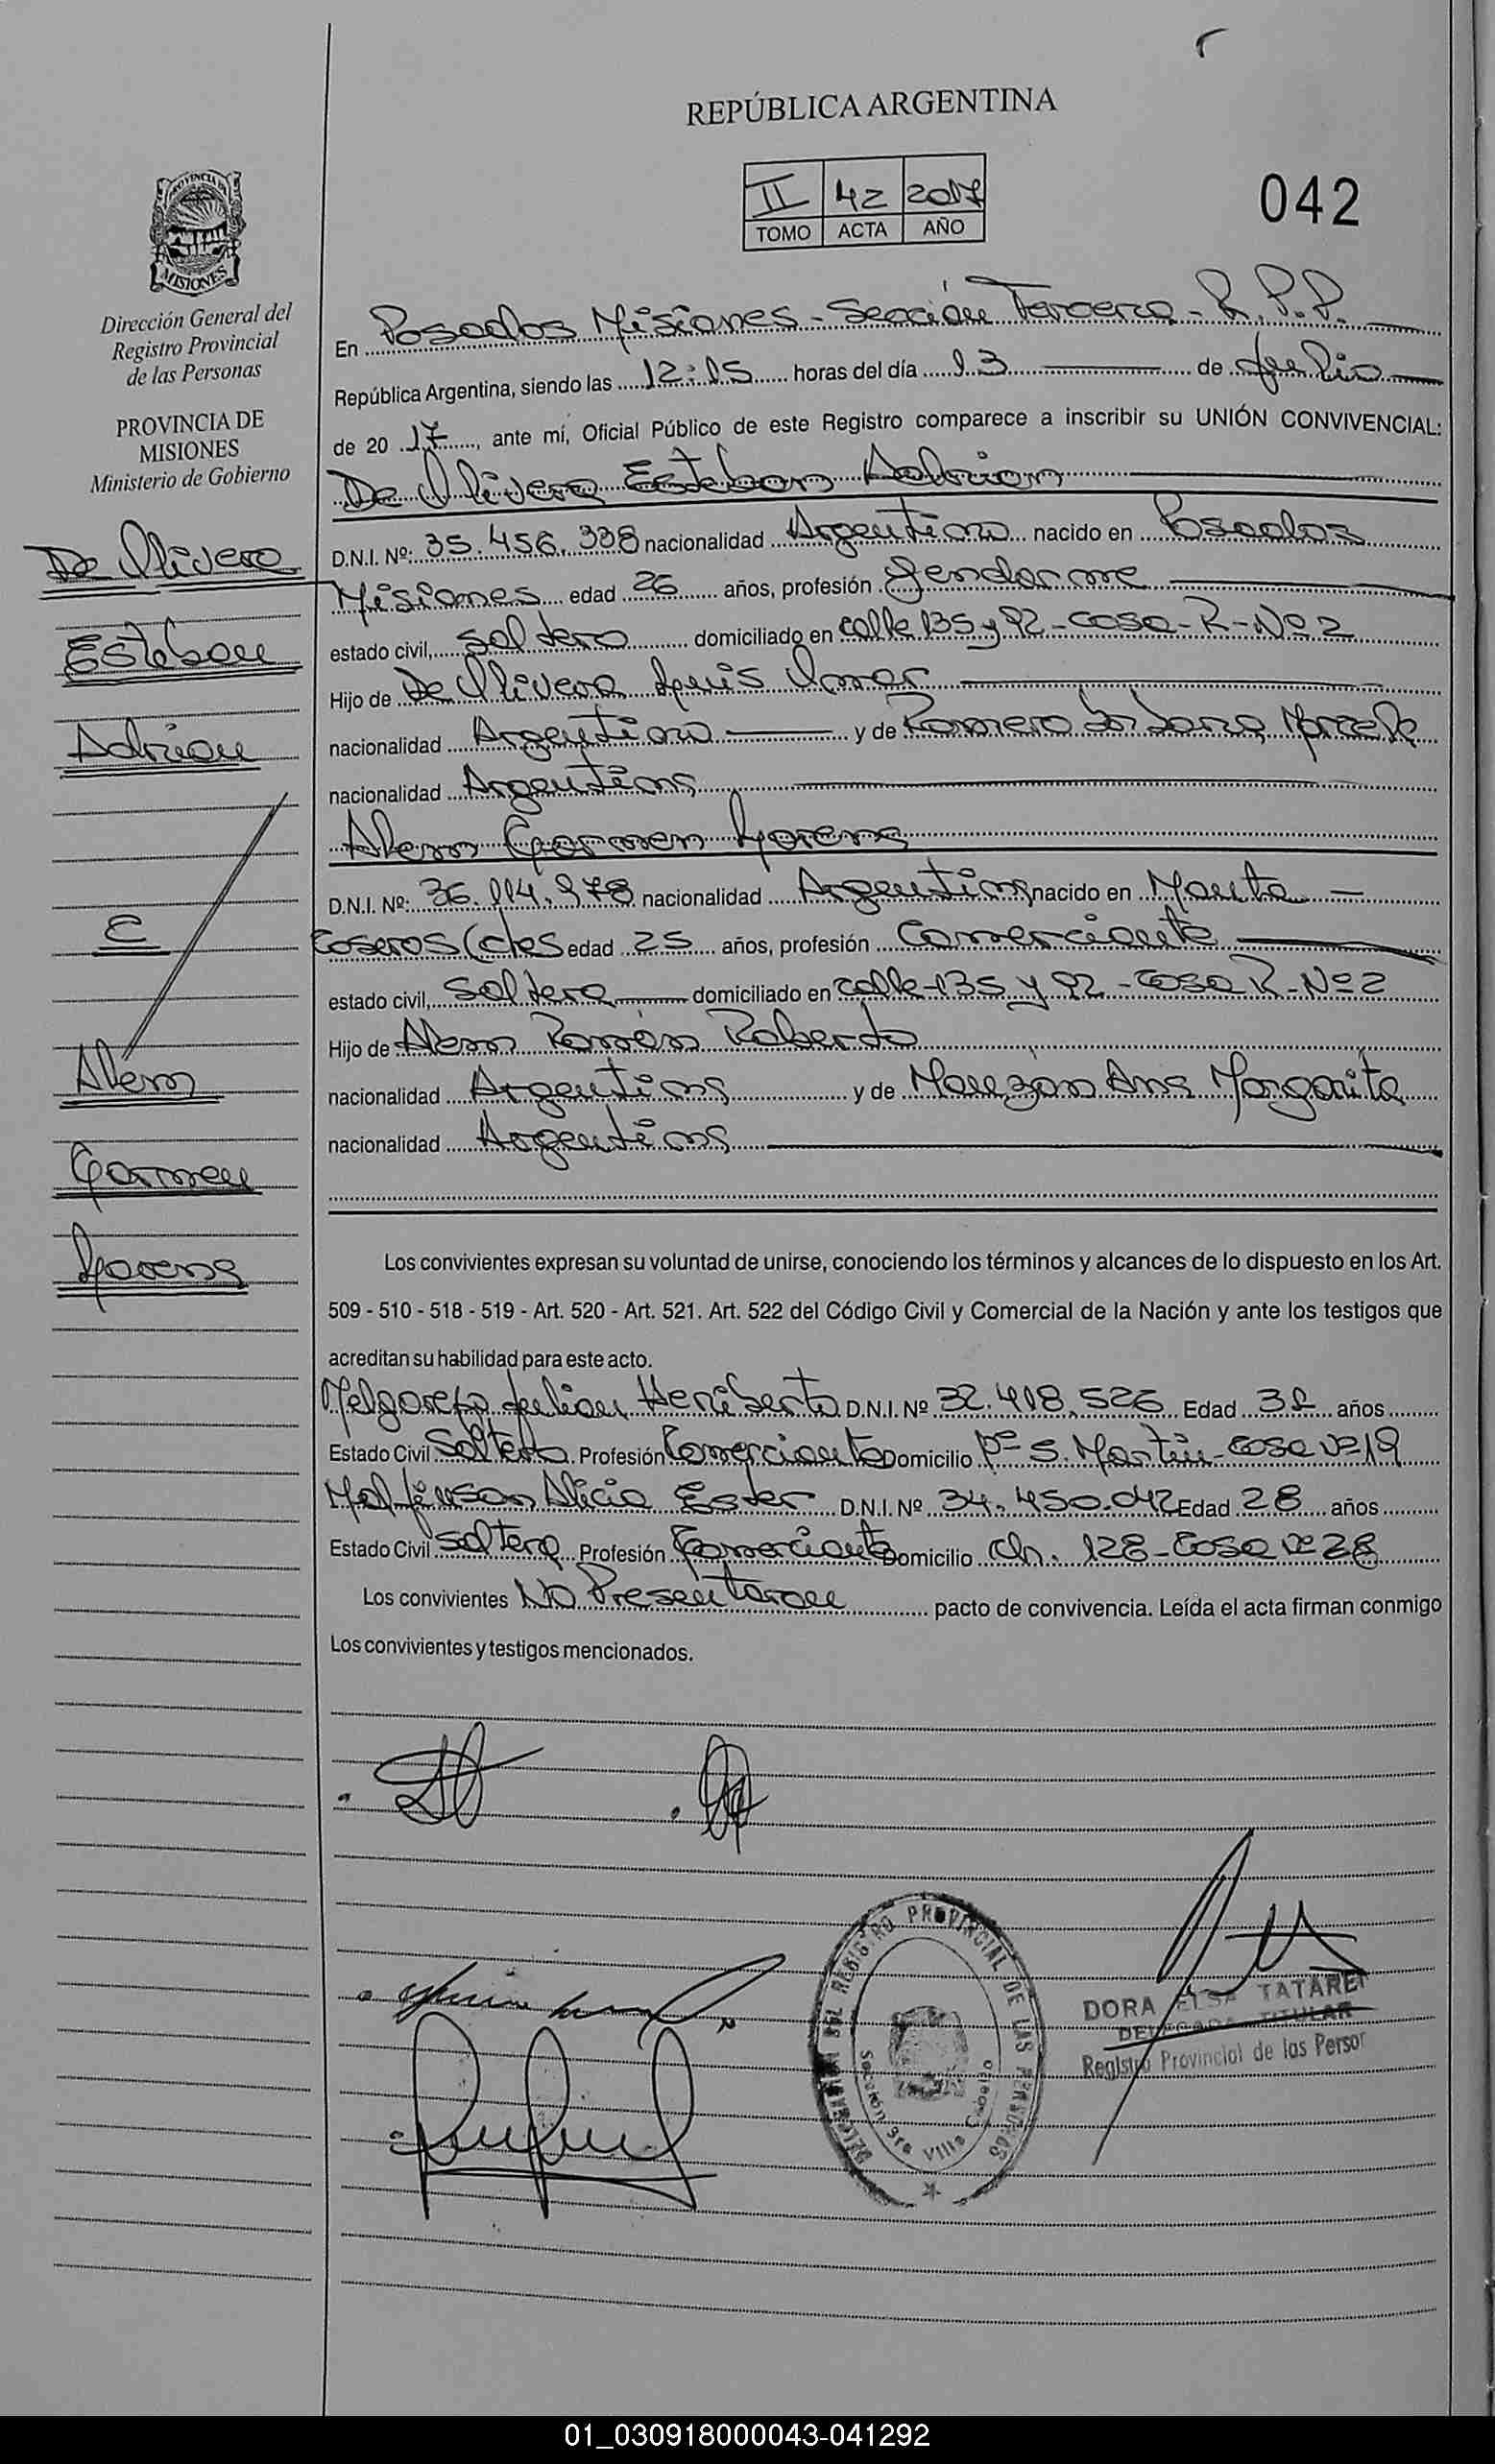 REPÚBLICA ARGENTINA
II 42 2017
TOMO ACTA AÑO
042
PROVINCIA DE
MISIONES
Dirección General del
Registro Provincial
de las Personas
PROVINCIA DE
MISIONES
Ministerio de Gobierno
De Olivera
Esteban
Adrian
E
Alem
Carmen
Lorena
En Posadas Misiones - Sección Tercera - R.P.P.
República Argentina, siendo las 12:15 horas del día 13 de Julio
de 20 17, ante mí, Oficial Público de este Registro comparece a inscribir su UNIÓN CONVIVENCIAL:
De Olivera Esteban Adrian
D.N.I. Nº: 35.456.338 nacionalidad Argentino nacido en Posadas
Misiones edad 26 años, profesión Gendarme
estado civil, soltero domiciliado en calle 135 y 92 - casa - R - Nº 2
Hijo de De Olivera Luis Omar
nacionalidad Argentino y de Romero Marcela
nacionalidad Argentina
Alem Carmen Lorena
D.N.I. Nº: 36.114.978 nacionalidad Argentina nacido en Monte
Caseros (Ctes edad 25 años, profesión Comerciante
estado civil, Soltera domiciliado en calle 135 y 92 - casa R - Nº 2
Hijo de Alem Ramón Roberto
nacionalidad Argentina y de Ana Margarita
nacionalidad Argentina
Los convivientes expresan su voluntad de unirse, conociendo los términos y alcances de lo dispuesto en los Art.
509 - 510 - 518 - 519 - Art. 520 - Art. 521. Art. 522 del Código Civil y Comercial de la Nación y ante los testigos que
acreditan su habilidad para este acto.
Melgarejo Julian Heriberto D.N.I. Nº 32.418.526 Edad 31 años
Estado Civil Soltero Profesión Comerciante Domicilio Bº S. Martín - Casa Nº 19
Alicia Ester D.N.I. Nº 34.450.042 Edad 28 años
Estado Civil Soltera Profesión Comerciante Domicilio Ch. 128 - Casa Nº 28
Los convivientes No Presentaron pacto de convivencia. Leída el acta firman conmigo
Los convivientes y testigos mencionados.
REGISTRO PROVINCIAL DE LAS PERSONAS
Sección 3ra Villa Cabello
DORA ELSA TATAREN
DELEGADA TITULAR
Registro Provincial de las Person
01_030918000043-041292